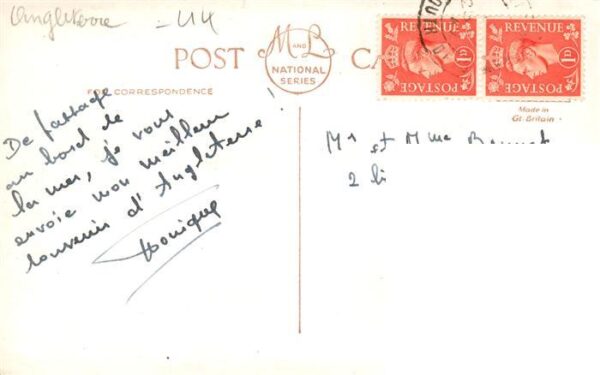 Angleterre - U4
POST CA
M AND L
NATIONAL
SERIES
FOR CORRESPONDENCE
REVENUE
1D
POSTAGE
REVENUE
1D
POSTAGE
Made in
Gt. Britain
De passage
au bord de
la mer, je vous
envoie mon meilleur
souvenir d'Angleterre !
Monique
Mr et Mme
2